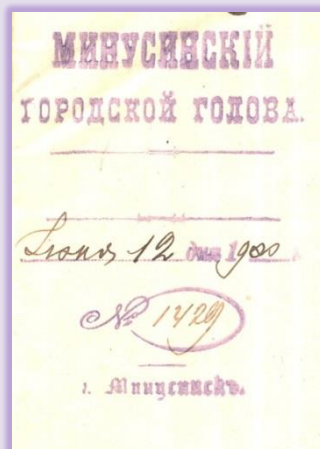 МИНУСИНСКІЙ
ГОРОДСКОЙ ГОЛОВА.
Іюня 12 дня 1900
№ 1429
г. Минусинскъ.